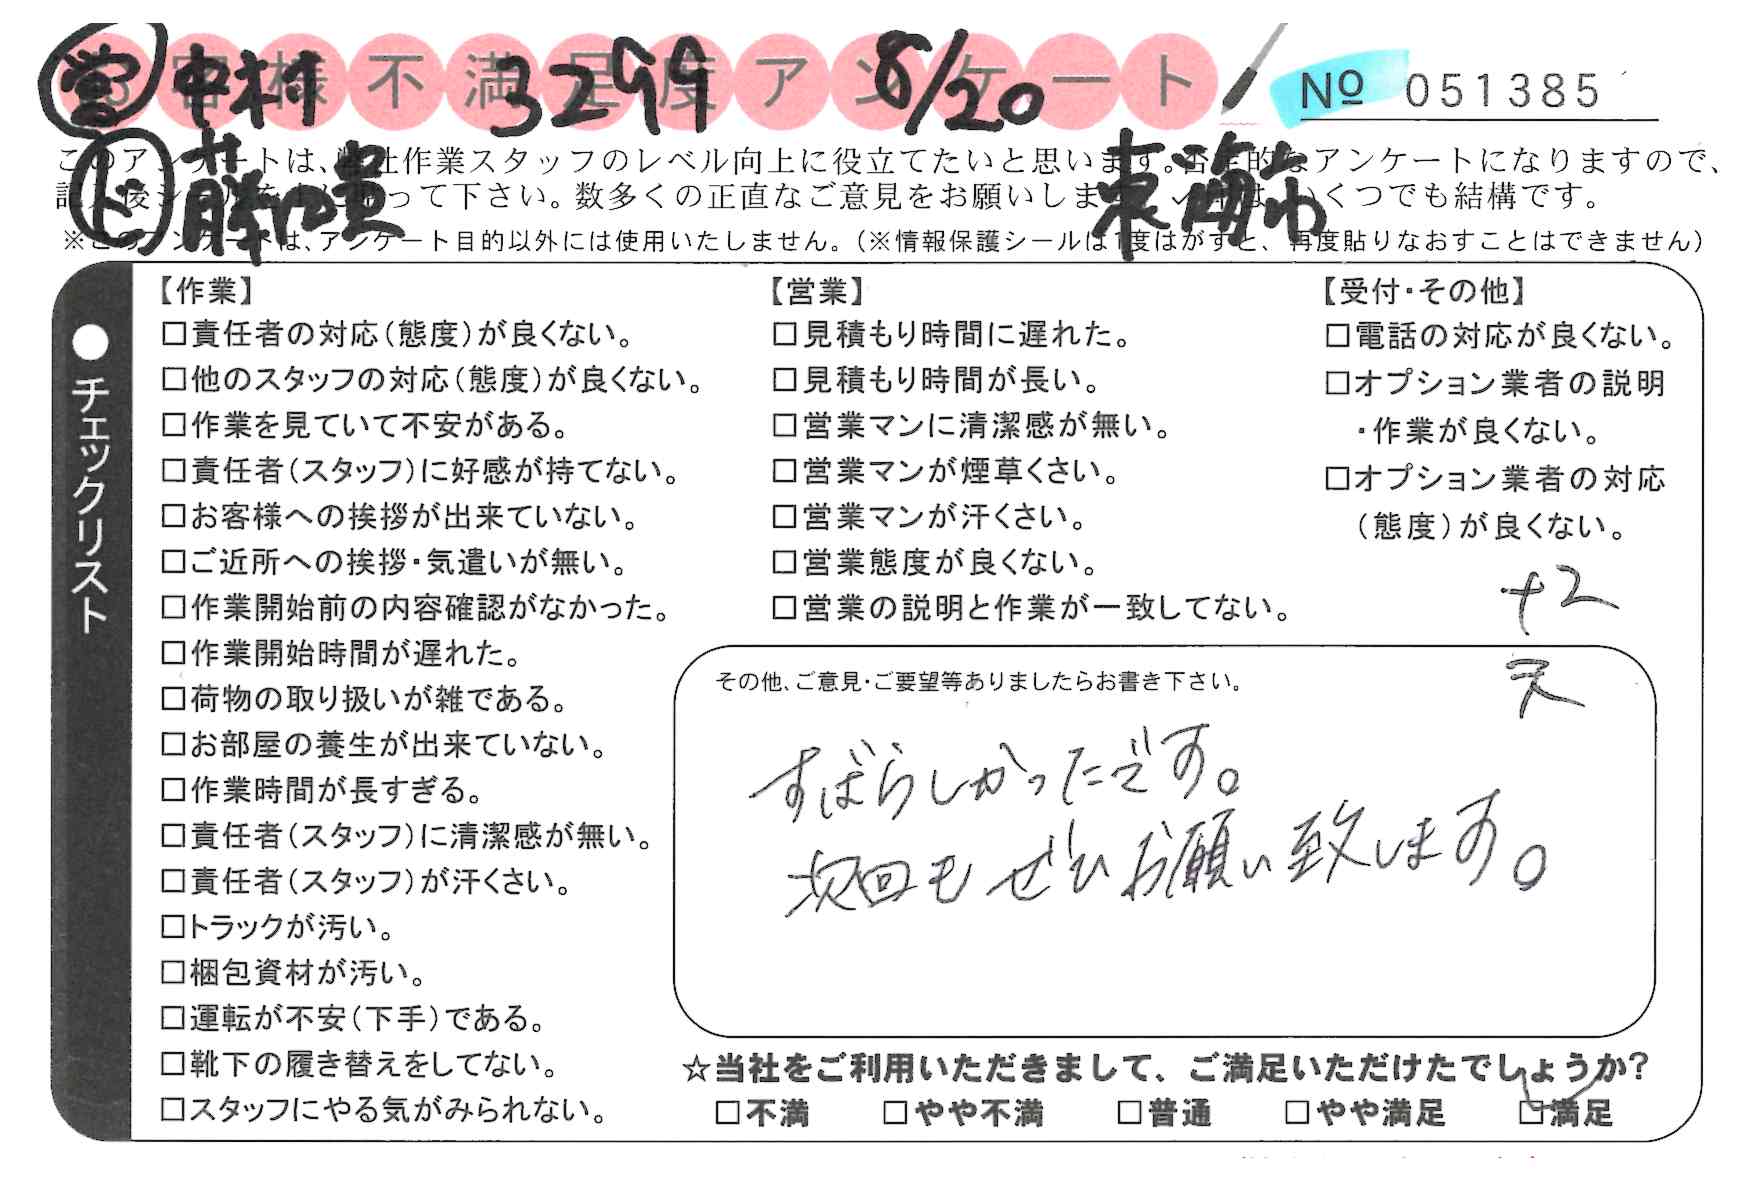 お客様不満足度アンケート
営 中村 3299 8/20
№ 051385
ド 藤 東海市
このアンケートは、弊社作業スタッフのレベル向上に役立てたいと思います。否定的なアンケートになりますので、
記入後シールを上に貼って下さい。数多くの正直なご意見をお願いします。 いくつでも結構です。
※このアンケートは、アンケート目的以外には使用いたしません。(※情報保護シールは1度はがすと、再度貼りなおすことはできません)
●チェックリスト
【作業】
□責任者の対応(態度)が良くない。
□他のスタッフの対応(態度)が良くない。
□作業を見ていて不安がある。
□責任者(スタッフ)に好感が持てない。
□お客様への挨拶が出来ていない。
□ご近所への挨拶・気遣いが無い。
□作業開始前の内容確認がなかった。
□作業開始時間が遅れた。
□荷物の取り扱いが雑である。
□お部屋の養生が出来ていない。
□作業時間が長すぎる。
□責任者(スタッフ)に清潔感が無い。
□責任者(スタッフ)が汗くさい。
□トラックが汚い。
□梱包資材が汚い。
□運転が不安(下手)である。
□靴下の履き替えをしてない。
□スタッフにやる気がみられない。
【営業】
□見積もり時間に遅れた。
□見積もり時間が長い。
□営業マンに清潔感が無い。
□営業マンが煙草くさい。
□営業マンが汗くさい。
□営業態度が良くない。
□営業の説明と作業が一致してない。
【受付・その他】
□電話の対応が良くない。
□オプション業者の説明
・作業が良くない。
□オプション業者の対応
(態度)が良くない。
+2
その他、ご意見・ご要望等ありましたらお書き下さい。
すばらしかったです。
次回もぜひお願い致します。
☆当社をご利用いただきまして、ご満足いただけたでしょうか?
□不満 □やや不満 □普通 □やや満足 □満足